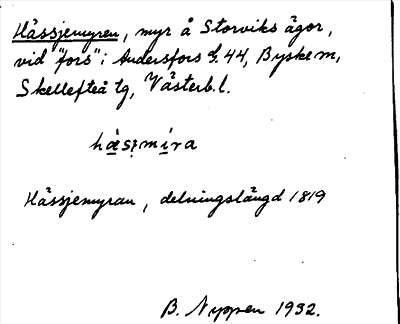 Hässjemyren, myr å Storviks ägor,
vid "fors" i Andersfors f. 44, Byske sn,
Skellefteå tg, Västerb.l.
hæsɪmíra
Hässjemyran, delningslängd 1819
B. Nyppen 1932.